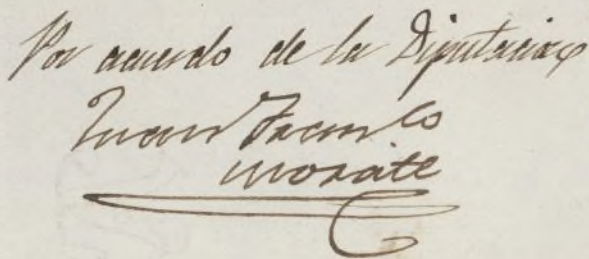 Por acuerdo de la Diputacion
Juan Franco
Morate